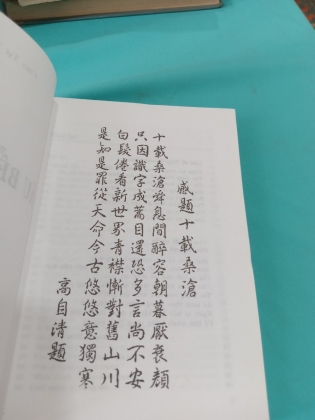 感題十載桑滄
十載桑滄舜息間醉容朝暮厭衰顏
只因識字成蒿目還恐多言尚不安
白髮倦看新世界青襟慚對舊山川
是知是罪從天命今古悠悠意獨寒
高自清題